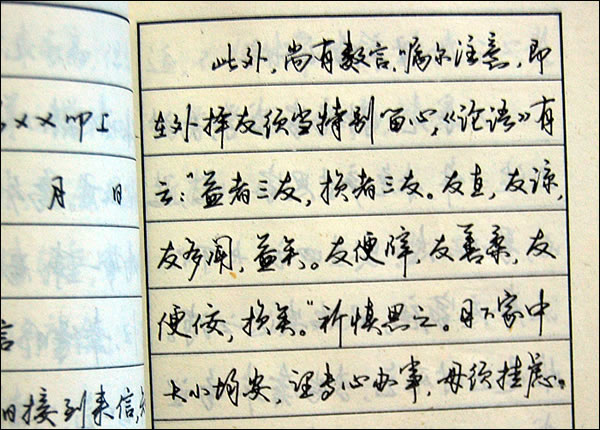 ××叩上
月 日
言
日接到来信,
此外,尚有数言,嘱尔注意,即
在外择友须当特别留心,《论语》有
云:"益者三友,损者三友。友直,友谅,
友多闻,益矣。友便辟,友善柔,友
便佞,损矣。"祈慎思之。目下家中
大小均安,望专心办事,毋须挂虑。